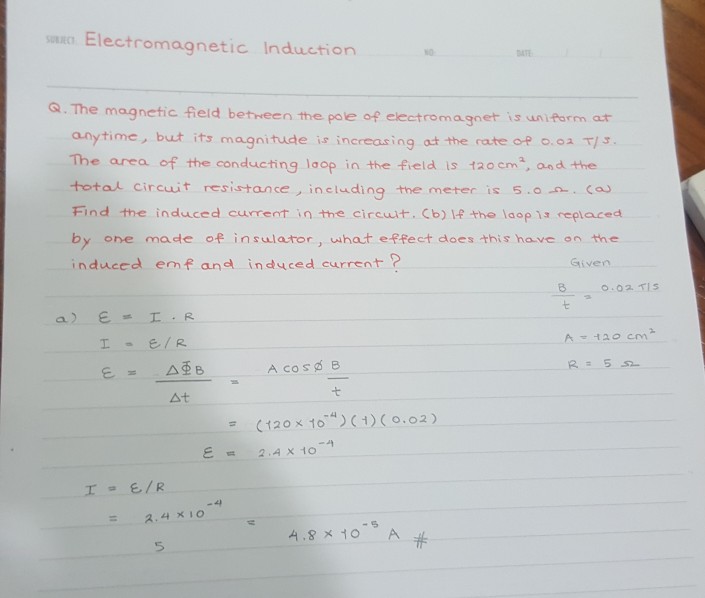 SUBJECT: Electromagnetic Induction NO: DATE:
Q. The magnetic field between the pole of electromagnet is uniform at
anytime, but its magnitude is increasing at the rate of 0.02 T/s.
The area of the conducting loop in the field is 120 cm², and the
total circuit resistance, including the meter is 5.0 Ω. (a)
Find the induced current in the circuit. (b) If the loop is replaced
by one made of insulator, what effect does this have on the
induced emf and induced current?
Given
B/t = 0.02 T/s
A = 120 cm²
R = 5 Ω
a) ε = I . R
I = ε/R
ε = ΔΦB/Δt = A cos ø B/t
= (120 × 10⁻⁴)(1)(0.02)
ε = 2.4 × 10⁻⁴
I = ε/R
= 2.4 × 10⁻⁴/5 = 4.8 × 10⁻⁵ A #